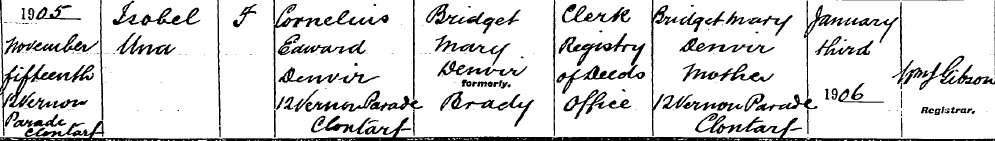 1905
November
fifteenth
12 Vernon
Parade
Clontarf
Isobel
Una
F
Cornelius
Edward
Denvir
12 Vernon Parade
Clontarf
Bridget
Mary
Denvir
formerly.
Brady
Clerk
Registry
of Deeds
Office
Bridget Mary
Denvir
Mother
12 Vernon Parade
Clontarf
January
third
1906
Wm J Gibson
Registrar.